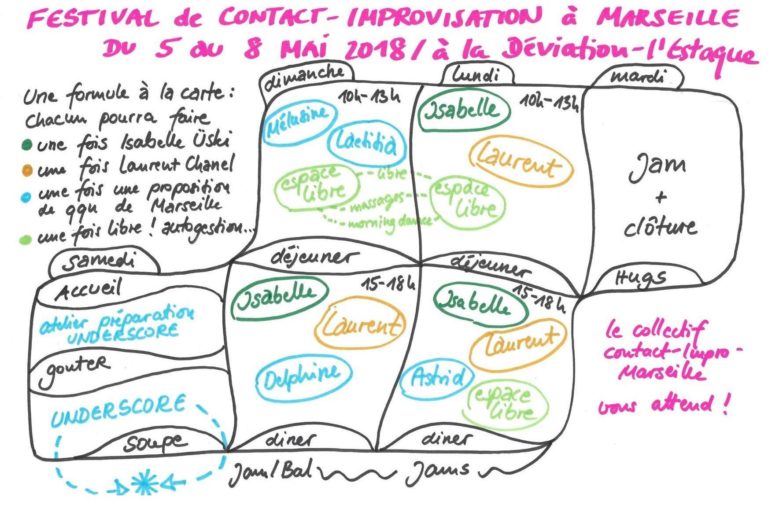 FESTIVAL de CONTACT-IMPROVISATION à MARSEILLE
DU 5 au 8 MAI 2018/ à la Déviation-l'Estaque
Une formule à la carte:
chacun pourra faire
une fois Isabelle Üski
une fois Laurent Chanel
une fois une proposition
de qqn de Marseille
une fois libre! autogestion...
samedi
Accueil
atelier préparation
UNDERSCORE
gouter
UNDERSCORE
soupe
dimanche
10h-13h
Mélusine
Laetitia
espace
libre
libre
massages
morning dance
déjeuner
15-18h
Isabelle
Laurent
Delphine
diner
Jam/Bal
lundi
10h-13h
Isabelle
Laurent
espace
libre
déjeuner
15-18h
Isabelle
Laurent
Astrid
espace
libre
diner
Jams
mardi
Jam
+
clôture
Hugs
le collectif
contact-Impro-
Marseille
vous attend!